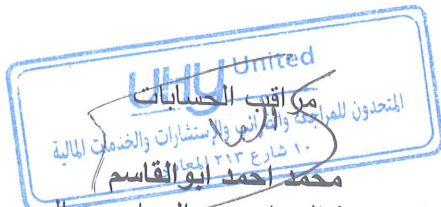 UHY United
مراقب الحسابات
المتحدون للمراجعة والضرائب والإستشارات والخدمات المالية
١٠ شارع ٢١٣ المعادى
محمد احمد ابوالقاسم